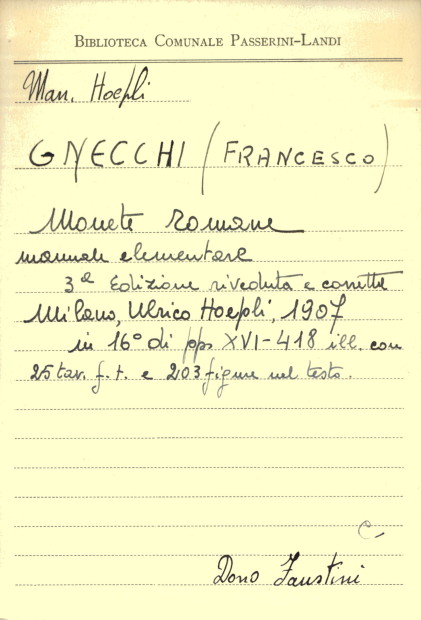 BIBLIOTECA COMUNALE PASSERINI-LANDI
Man. Hoepli
GNECCHI (FRANCESCO)
Monete romane
manuale elementare
3ª Edizione riveduta e corretta
Milano, Ulrico Hoepli, 1907
in 16° di pps XVI-418 ill. con
25 tav. f.t. e 203 figure nel testo.
C.
Dono Faustini